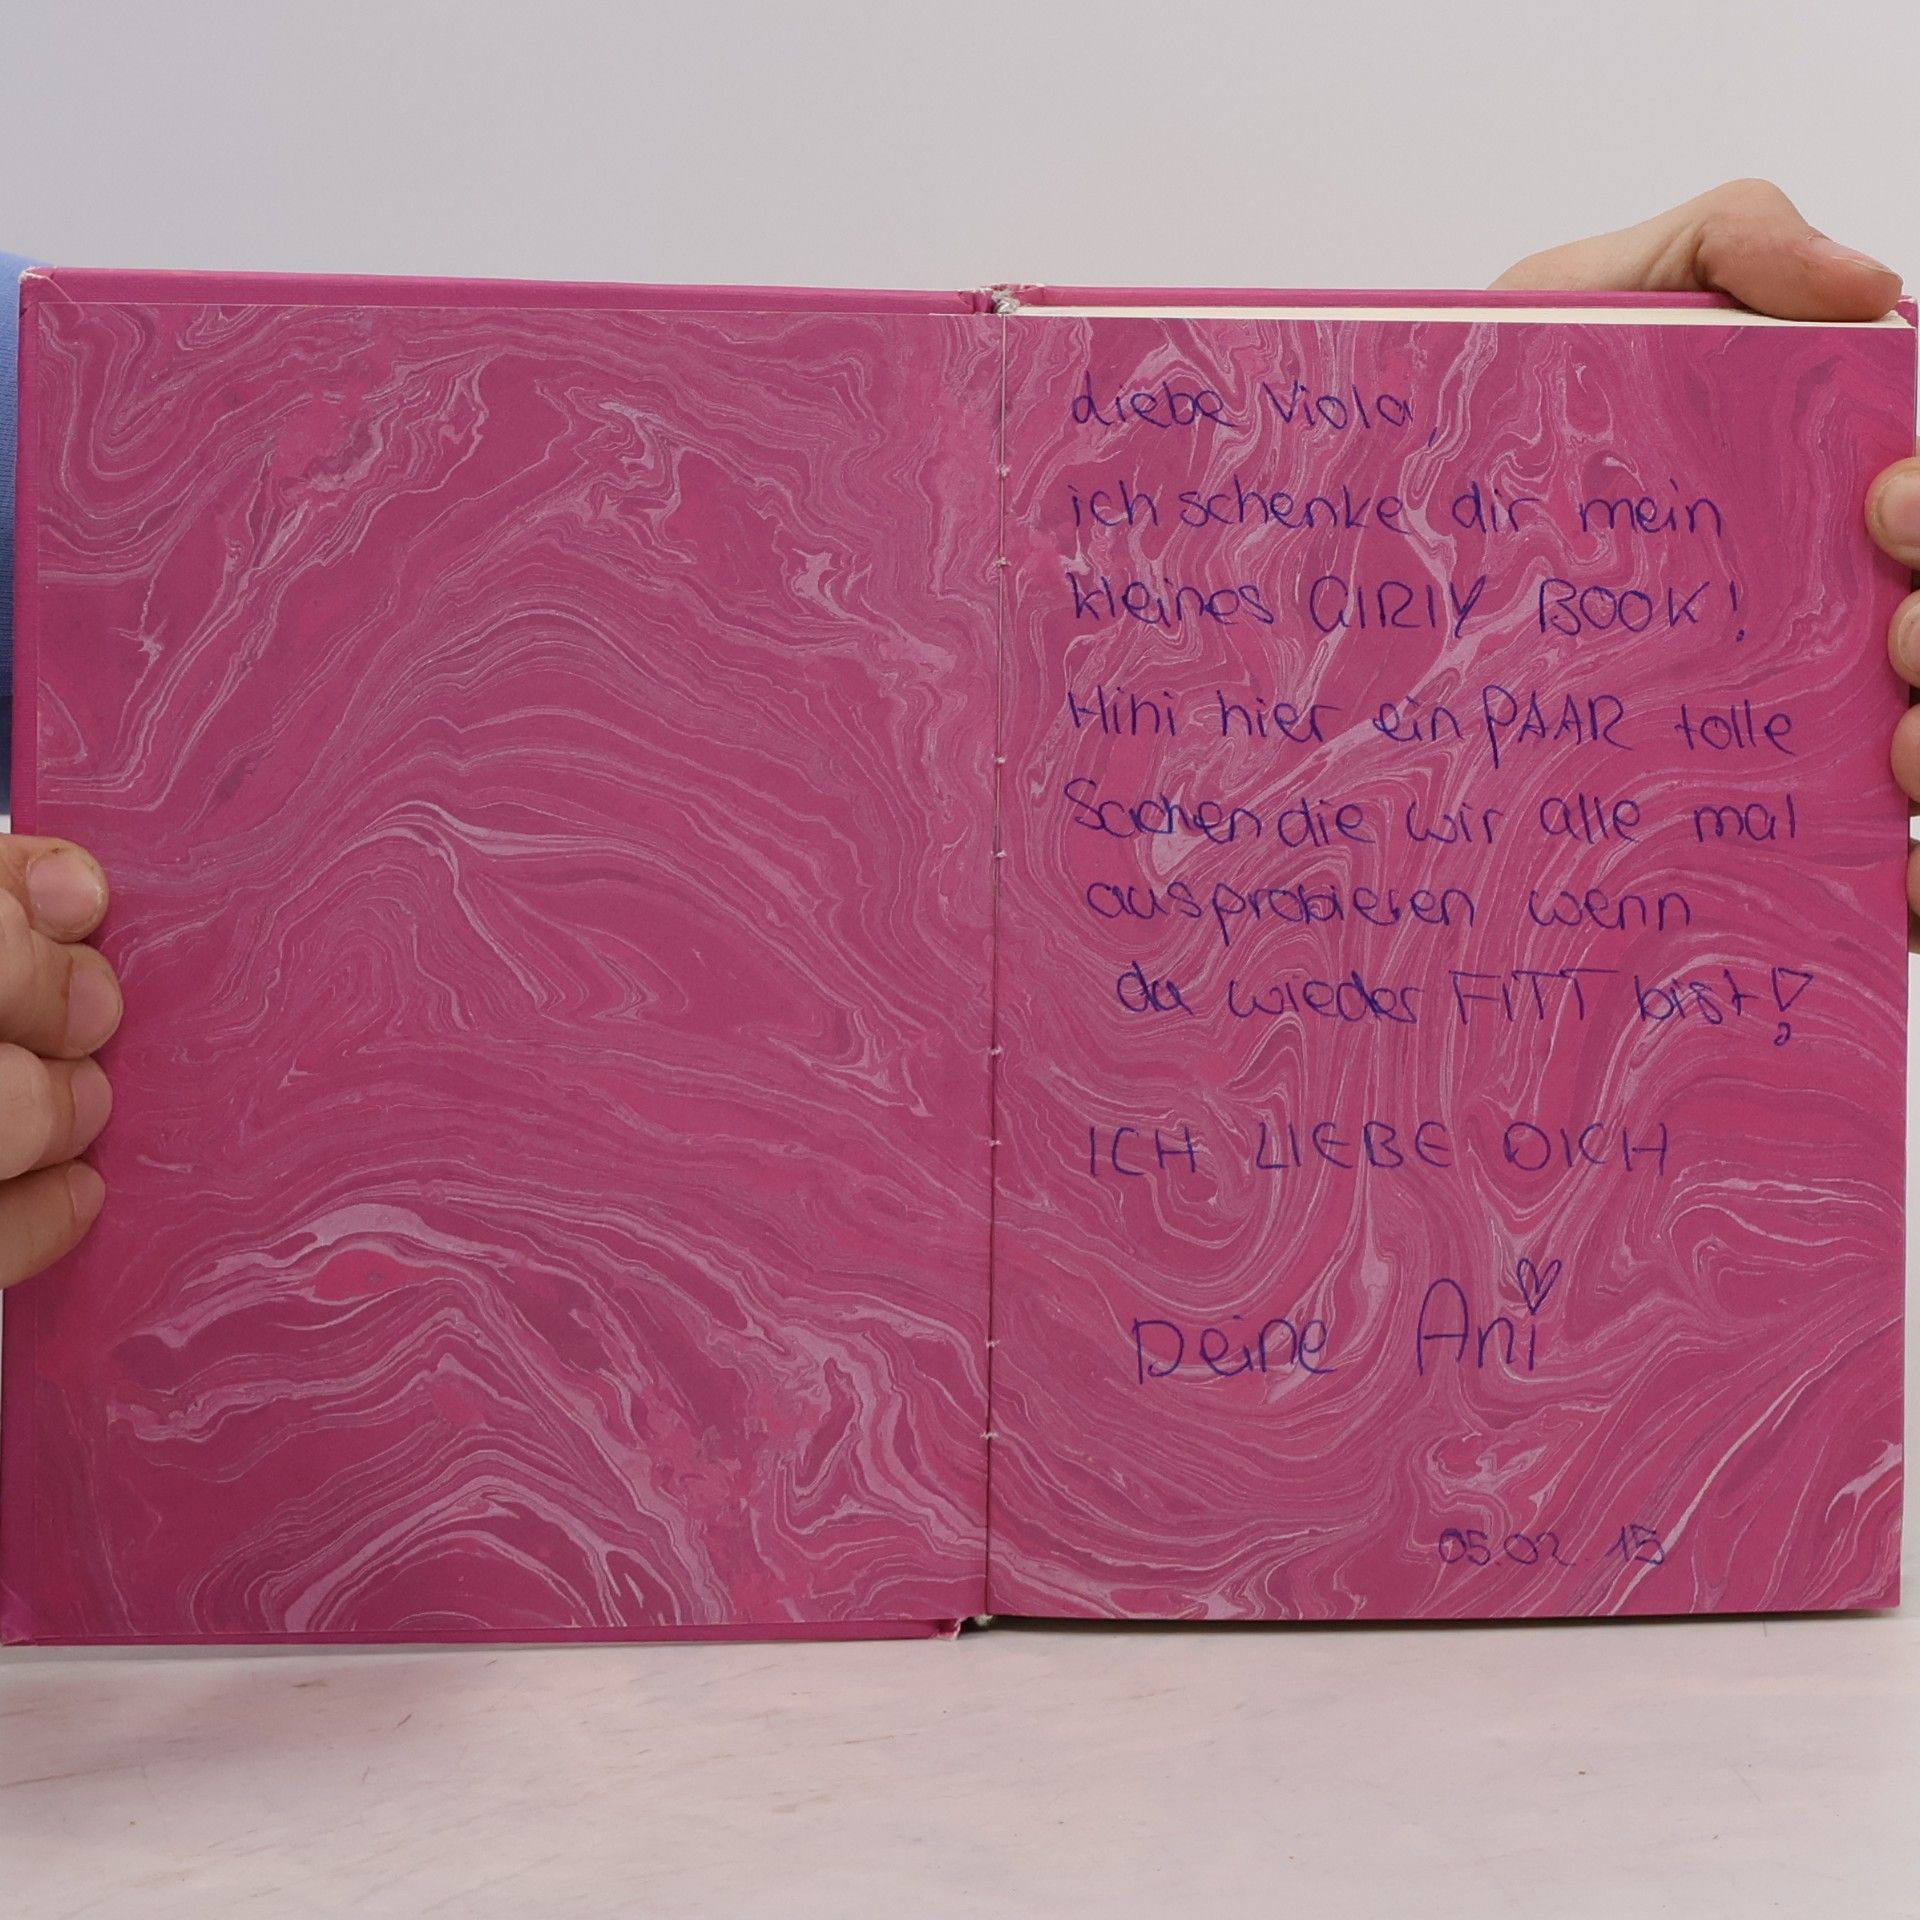 liebe Viola,
ich schenke dir mein
kleines GIRLY BOOK!
Hihi hier ein PAAR tolle
Sachen die wir alle mal
ausprobieren wenn
du wieder FITT bist!
ICH LIEBE DICH
Deine Ani
05.02.15